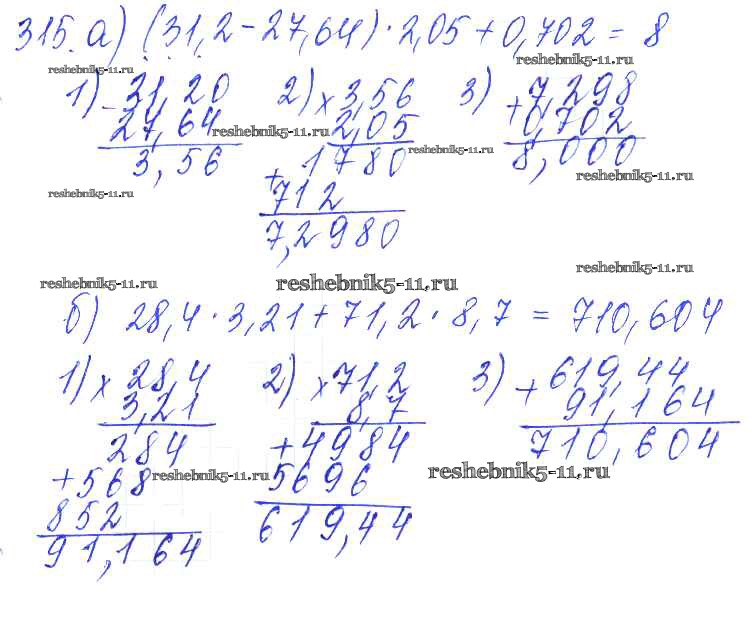 315. а) (31,2 - 27,64) · 2,05 + 0,702 = 8
reshebnik5-11.ru
reshebnik5-11.ru
1) - 31,20
27,64
3,56
2) × 3,56
2,05
+ 1780
712
7,2980
3) + 7,298
0,702
8,000
reshebnik5-11.ru
reshebnik5-11.ru
reshebnik5-11.ru
reshebnik5-11.ru
reshebnik5-11.ru
reshebnik5-11.ru
reshebnik5-11.ru
б) 28,4 · 3,21 + 71,2 · 8,7 = 710,604
1) × 28,4
3,21
284
+ 568
852
91,164
2) × 71,2
8,7
+ 4984
5696
619,44
3) + 619,44
91,164
710,604
reshebnik5-11.ru
reshebnik5-11.ru